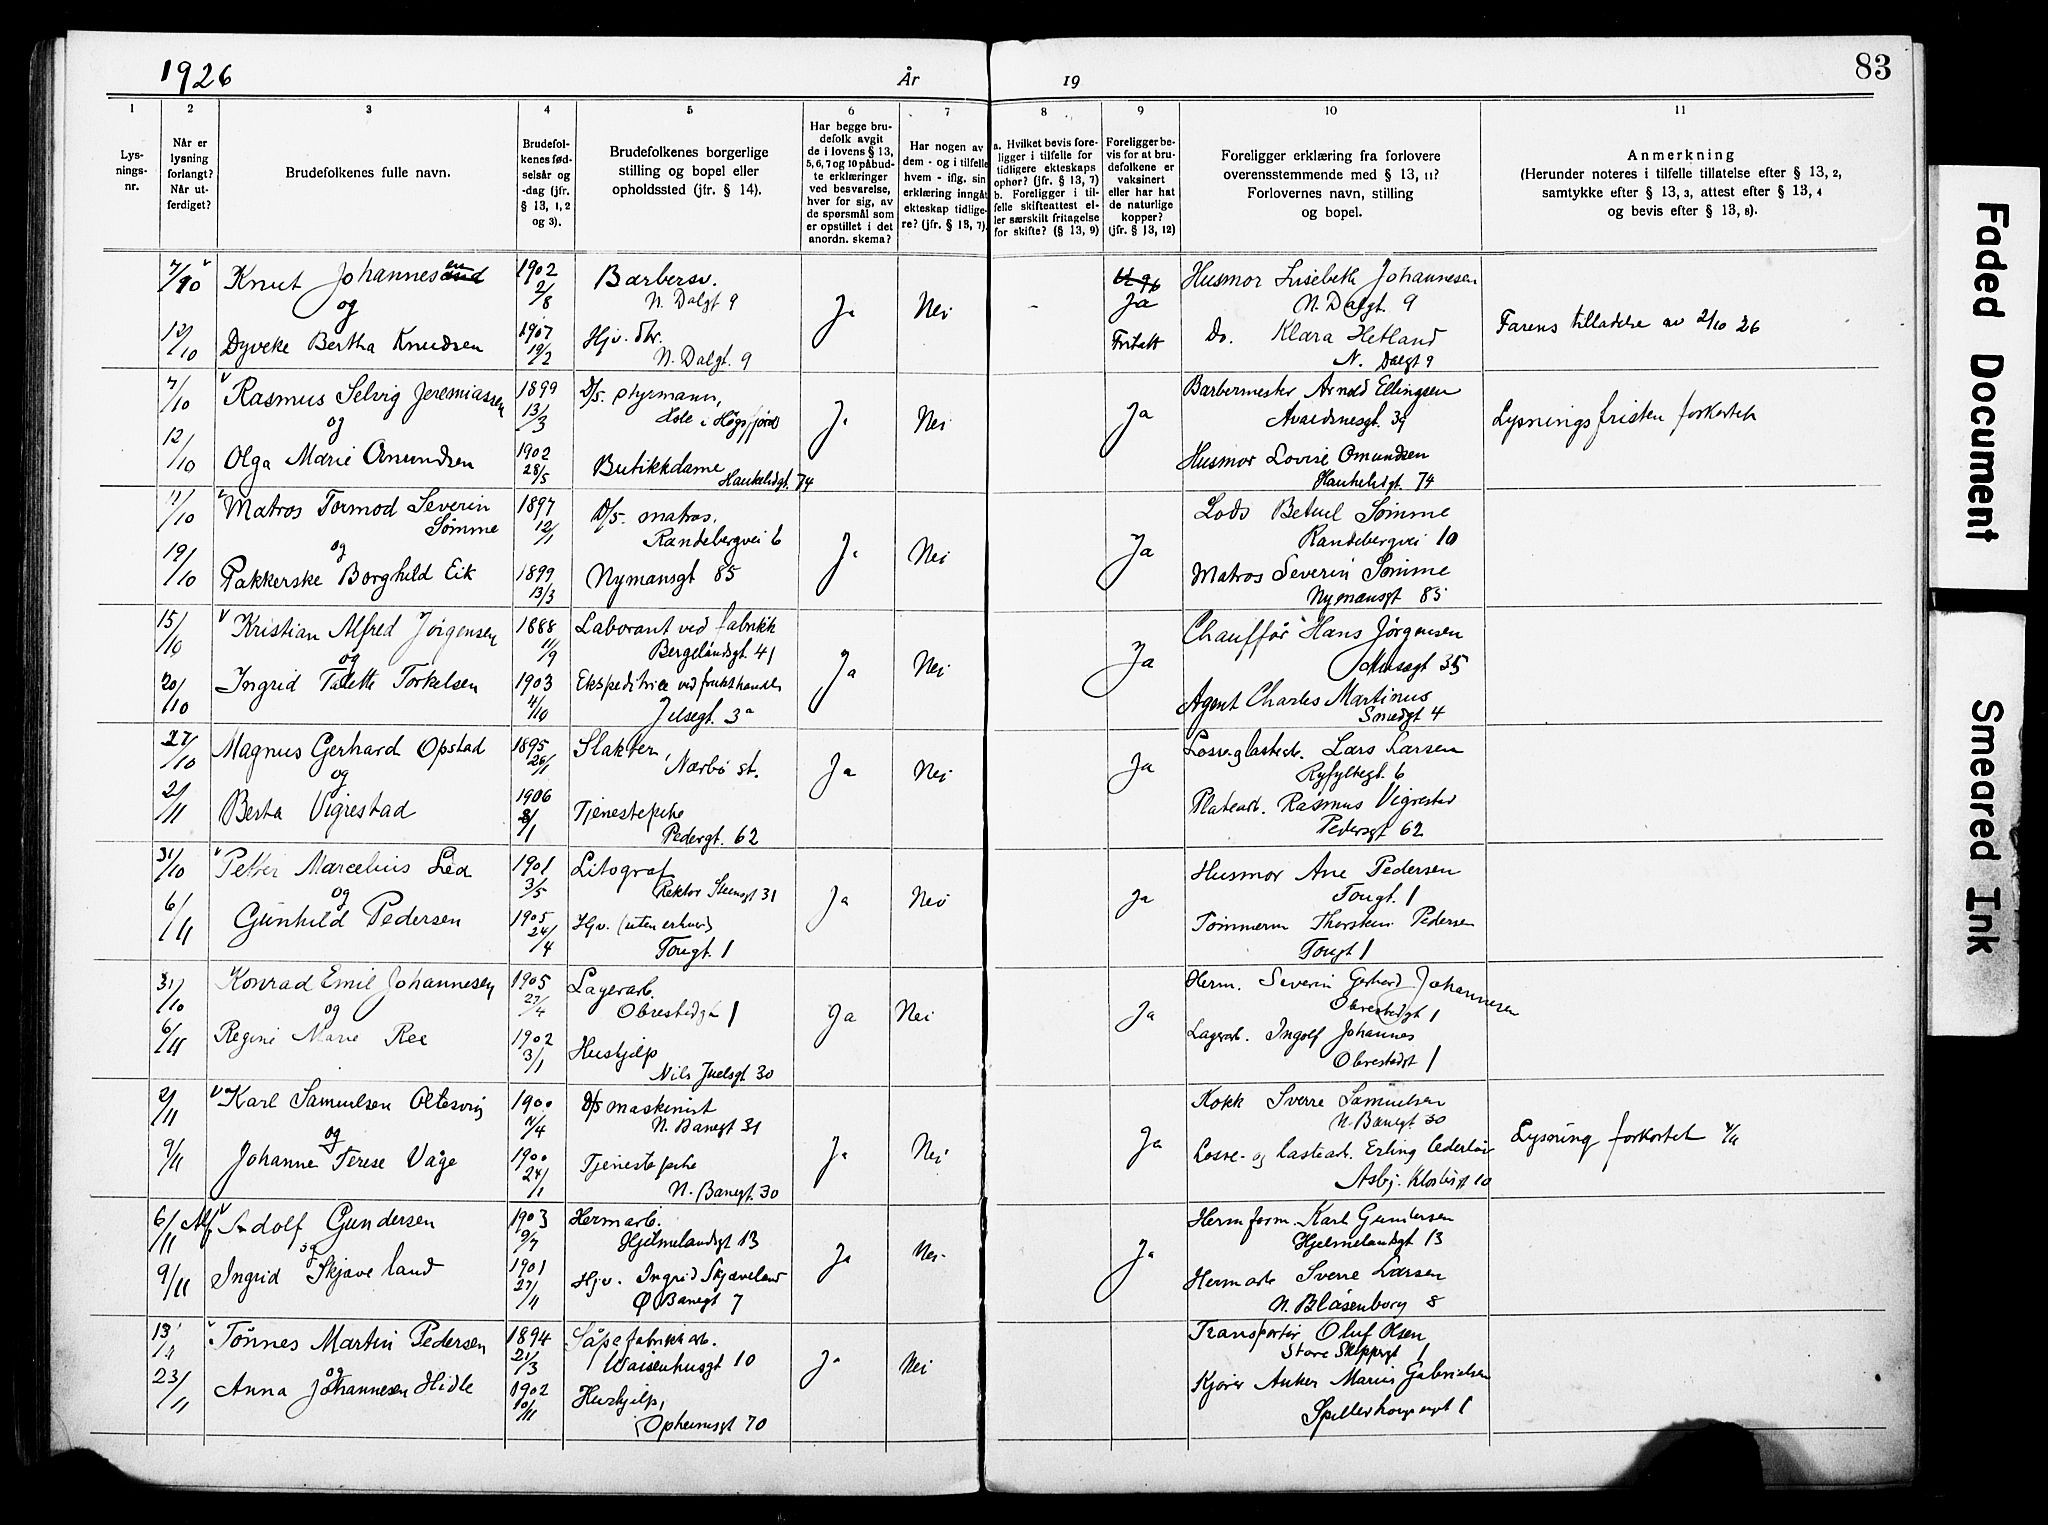 1926
År
19
83
1
2
3
4
5
6
7
8
9
10
11
Lys-
nings-
nr.
Når er
lysning
forlangt?
Når ut-
ferdiget?
Brudefolkenes fulle navn.
Brudefol-
kenes fød-
selsår og
-dag (jfr.
§ 13, 1, 2
og 3).
Brudefolkenes borgerlige
stilling og bopel eller
opholdssted (jfr. § 14).
Har begge bru-
defolk avgit
de i lovens § 13,
5, 6, 7 og 10 påbud-
te erklæringer
ved besvarelse,
hver for sig, av
de spørsmål som
er opstillet i det
anordn. skema?
Har nogen av
dem - og i tilfelle
hvem - iflg. sin
erklæring inngåt
ekteskap tidlige-
re? (jfr. § 13, 7).
a. Hvilket bevis fore-
ligger i tilfelle for
tidligere ekteskaps
ophør? (jfr. § 13, 7)
b. Foreligger i til-
felle skifteattest el-
ler særskilt fritagelse
for skifte? (§ 13, 9)
Foreligger be-
vis for at bru-
defolkene er
vaksinert
eller har hat
de naturlige
kopper?
(jfr. § 13, 12)
Foreligger erklæring fra forlovere
overensstemmende med § 13, 11?
Forlovernes navn, stilling
og bopel.
Anmerkning
(Herunder noteres i tilfelle tillatelse efter § 13, 2,
samtykke efter § 13, 3, attest efter § 13, 4
og bevis efter § 13, 8).
7/10
12/10
Knut Johannesen
og
Dyveke Bertha Knudsen
1902
2/8
1907
19/2
Barbersv.
N. Dalgt 9
Hjv. dtr.
N. Dalgt. 9
Ja
Nei
-
Ja
Fritatt
Husmor Lisebeth Johannesen
N. Dalgt. 9
Do. Klara Hetland
N. Dalgt 9
Farens tilladelse av 2/10 26
7/10
12/10
Rasmus Selvig Jeremiassen
og
Olga Marie Omundsen
1899
13/3
1902
28/5
D/S. styrmann,
Hole i Høgsfjord
Butikkdame
Haukeligt. 74
Ja
Nei
Ja
Barbermester Arnold Ellingsen
Avaldsnesgt. 39
Husmor Lovise Omundsen
Haukeligt. 74
Lysningsfristen forkortet
11/10
19/10
Matros Tormod Severin
Sømme
og
Pakkerske Borghild Eik
1897
12/1
1899
13/3
D/S. matros,
Randebergvei 6
Nymansgt 85
Ja
Nei
Ja
Lods Betuel Sømme
Randebergvei 10
Matros Severin Sømme
Nymansgt 85
15/10
20/10
Kristian Alfred Jørgensen
og
Ingrid Talette Torkelsen
1888
11/9
1903
4/10
Laborant ved fabrikk
Bergelandsgt. 41
Ekspeditrice ved frukthandel
Jelsegt. 3a
Ja
Nei
Ja
Chauffør Hans Jørgensen
Musegt 35
Agent Charles Martinus
Smedgt 4
27/10
2/11
Magnus Gerhard Opstad
og
Berta Vigrestad
1895
26/1
1906
8/1
Slakter,
Nærbø st.
Tjenestepike
Pedergt. 62
Ja
Nei
Ja
Losse-glastearb. Lars Larsen
Ryfylkegt. 6
Platearb. Rasmus Vigrestad
Pedersgt 62
31/10
6/11
Petter Marcelius Lea
og
Gunhild Pedersen
1901
3/5
1905
24/4
Litograf
Rektor Steensgt 31
Hjv. (uten erhverv)
Tougt. 1
Ja
Nei
Ja
Husmor Ane Pedersen
Tougt. 1
Tømmerm Thorstein Pedersen
Tougt 1
31/10
6/11
Konrad Emil Johannesen
og
Regine Marie Ree
1905
27/4
1902
3/1
Lagerarb.
Obrestadgt 1
Hushjelp
Nils Juelsgt 30
Ja
Nei
Ja
Herm. Severin Gerhard Johannesen
Obrestadgt 1
Lagerarb. Ingolf Johannes
Obrestadgt 1
2/11
9/11
Karl Samuelsen Oltesvig
og
Johanne Terese Våge
1900
4/4
1900
24/1
D/S maskinist
N. Banegt 31
Tjenestepike
N. Banegt. 30
Ja
Nei
Ja
Kokk Sverre Samuelsen
N. Banegt 30
Losse- og lastearb. Erling Cederløv
Asbj. Klostergt 10
Lysning forkortet 4/11
6/11
9/11
Adolf Gundersen
og
Ingrid Skjæveland
1903
9/7
1901
27/4
Hermarb.
Hjelmelandsgt 13
Hjv. Ingrid Skjæveland
Ø Banegt 7
Ja
Nei
Ja
Herm form. Karl Gundersen
Hjelmelandsgt 13
Hermarb Sverre Larsen
N. Blåsenborg 8
13/11
23/11
Tønnes Martin Pedersen
og
Anna Johannesen Hidle
1894
21/3
1902
10/11
Såpefabrikkarb.
Waisenhusgt 10
Hushjelp,
Opheimsgt 70
Ja
Nei
Transportør Oluf Olsen
Store Skippergt 1
Kjører Anker Marius Gabrielsen
Spilderhaugengt 1
Faded Document
Smeared Ink